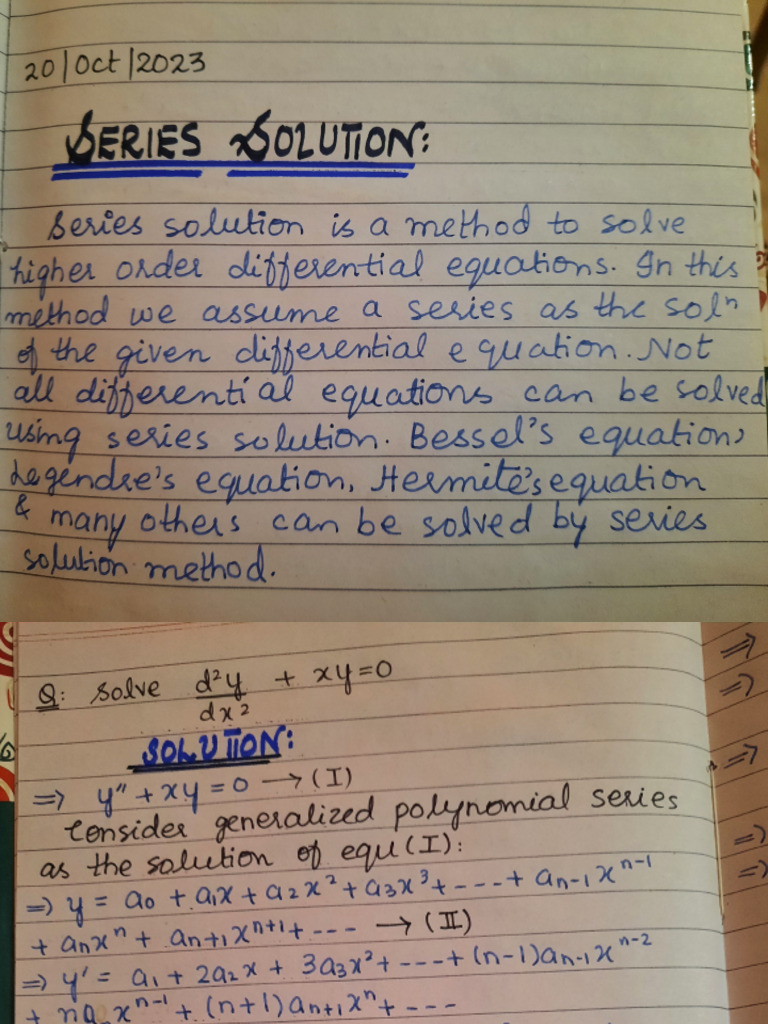 20|Oct|2023
SERIES SOLUTION:
Series solution is a method to solve
higher order differential equations. In this
method we assume a series as the solⁿ
of the given differential equation. Not
all differential equations can be solved
using series solution. Bessel's equation,
Legendre's equation, Hermite's equation
& many others can be solved by series
solution method.
Q: Solve d²y/dx² + xy=0
SOLUTION:
⇒ y'' + xy = 0 → (I)
Consider generalized polynomial series
as the solution of equ (I):
⇒ y = a₀ + a₁x + a₂x² + a₃x³ + ---- + aₙ₋₁xⁿ⁻¹
+ aₙxⁿ + aₙ₊₁xⁿ⁺¹ + --- → (II)
⇒ y' = a₁ + 2a₂x + 3a₃x² + ---- + (n-1)aₙ₋₁xⁿ⁻²
+ naₙxⁿ⁻¹ + (n+1)aₙ₊₁xⁿ + ----
⇒
⇒
⇒
⇒
⇒